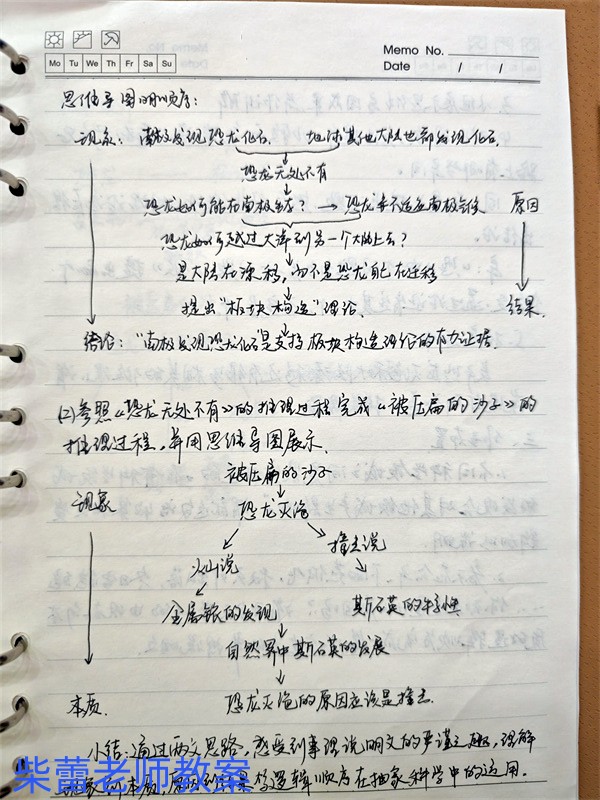 Memo No.
Mo Tu We Th Fr Sa Su
Date / /
思维导图的顺序:
现象: 南极发现恐龙化石. 地球其他大陆也都发现化石.
恐龙无处不有
恐龙如何能在南极生存? → 恐龙并不适应南极气候 原因
恐龙如何越过大洋到另一个大陆上去?
是大陆在漂移,而不是恐龙自己在迁移
提出“板块构造”理论. 结果.
结论: “南极发现恐龙化石”是支持板块构造理论的有力证据.
(2)参照《恐龙无处不有》的推理过程完成《被压扁的沙子》的
推理过程,并用思维导图展示.
被压扁的沙子
现象 恐龙灭绝
火山说 撞击说
金属铱的发现 斯石英的特性
自然界中斯石英的发展
本质. 恐龙灭绝的原因应该是撞击.
小结:通过两文思路,感受到事理说明文的严谨之趣,理解
现象到本质,原因到结果等逻辑顺序在抽象科学中的运用.
柴蕾老师教案